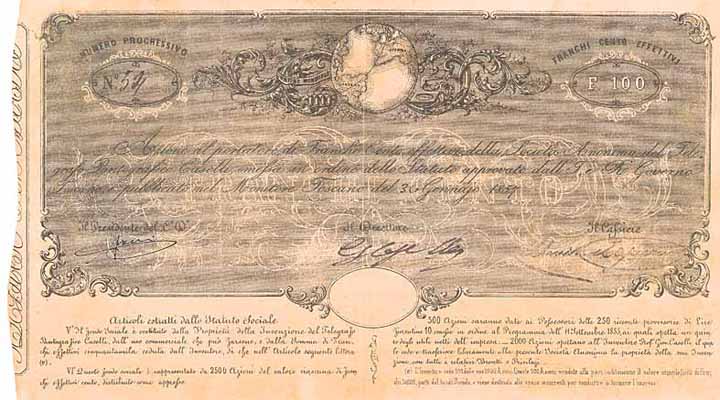 NUMERO PROGRESSIVO
FRANCHI CENTO EFFETTIVI
N.º 54
F. 100
Azione al portatore di Franchi Cento effettivi della Società Anonima del Tele-
grafo Pantografico Caselli emessa in ordine dello Statuto approvato dall' I. e R. Governo
Toscano e pubblicato nel Monitore Toscano del 30 Gennajo 1857
Il Presidente del C. D.
Il Direttore
Il Cassiere
Articoli estratti dallo Statuto Sociale
V.º Il fondo Sociale è costituito dalla Proprietà della Invenzione del Telegrafo
Pantografico Caselli, dall' uso commerciale che può farsene, e dalla somma di Fran-
chi effettivi cinquantamila ceduta dall' Inventore, di che nell' Articolo seguente lettera
(c).
VI. Questo fondo sociale è rappresentato da 2500 Azioni del valore ciascuna di fran-
chi effettivi cento, distribuite come appresso.
500 Azioni saranno date ai Possessori delle 250 ricevute provvisorie di Lire
fiorentine 10 emesse in ordine al Programma dell' 11 Settembre 1855, ai quali spetta un quin-
degli utili netti dell' impresa. 2000 Azioni spettano all' Inventore Prof. Gio. Caselli il qua-
le cede e trasferisce liberamente alla presente Società Anonima la proprietà della sua Inven-
zione, con tutti i relativi Brevetti e Privilegi.